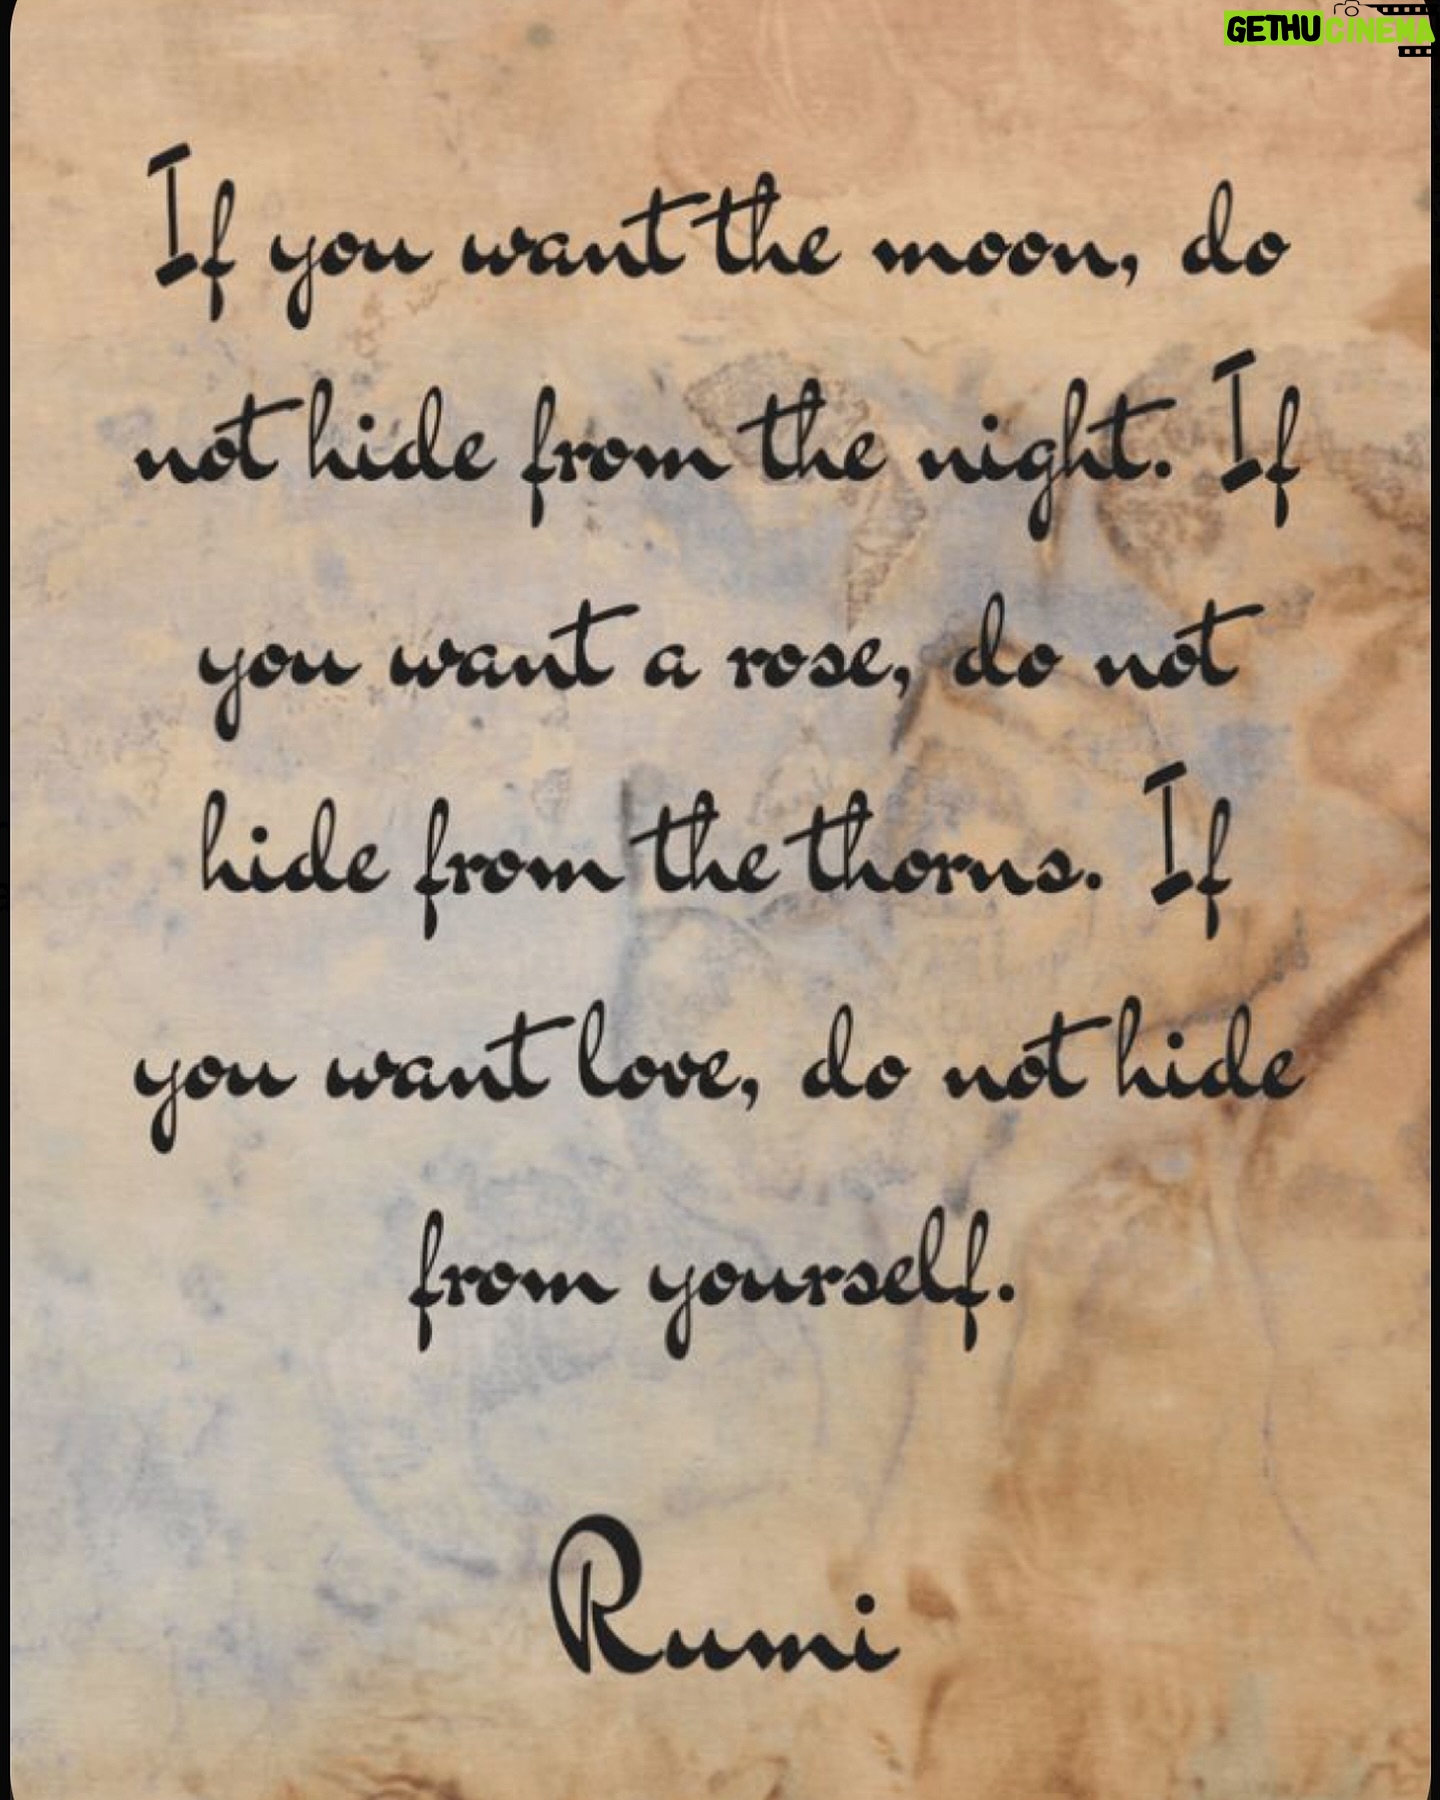 GETHUCINEMA
If you want the moon, do
not hide from the night. If
you want a rose, do not
hide from the thorns. If
you want love, do not hide
from yourself.
Rumi